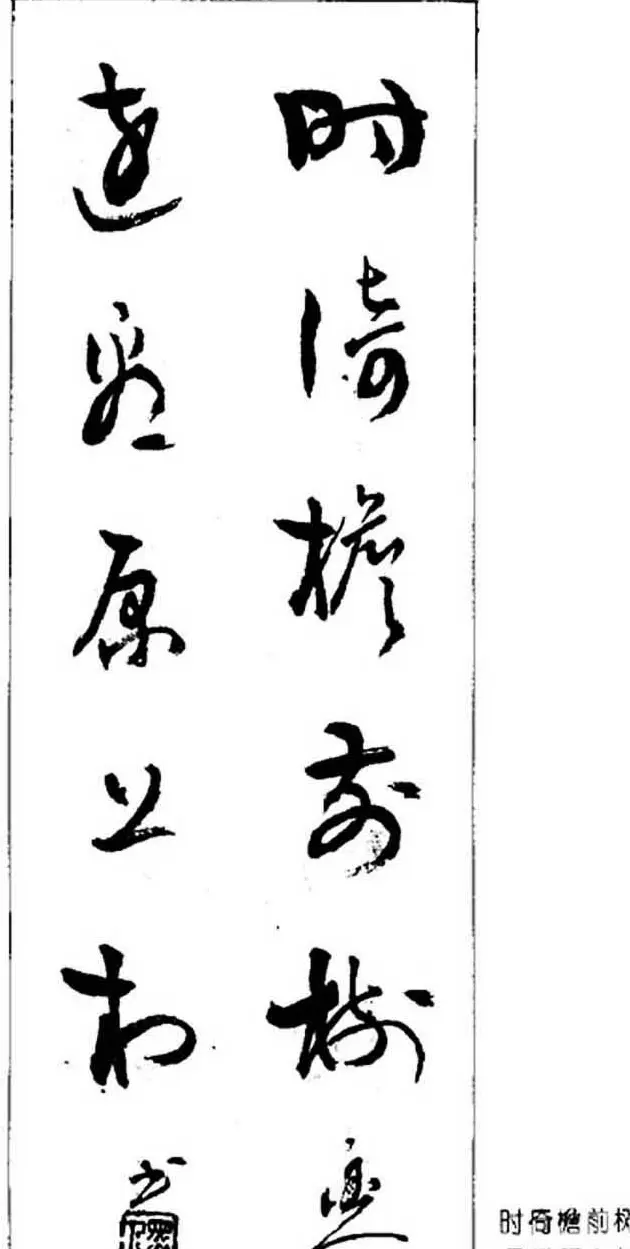 时倚檐前树
远看原上村
书
时倚檐前树